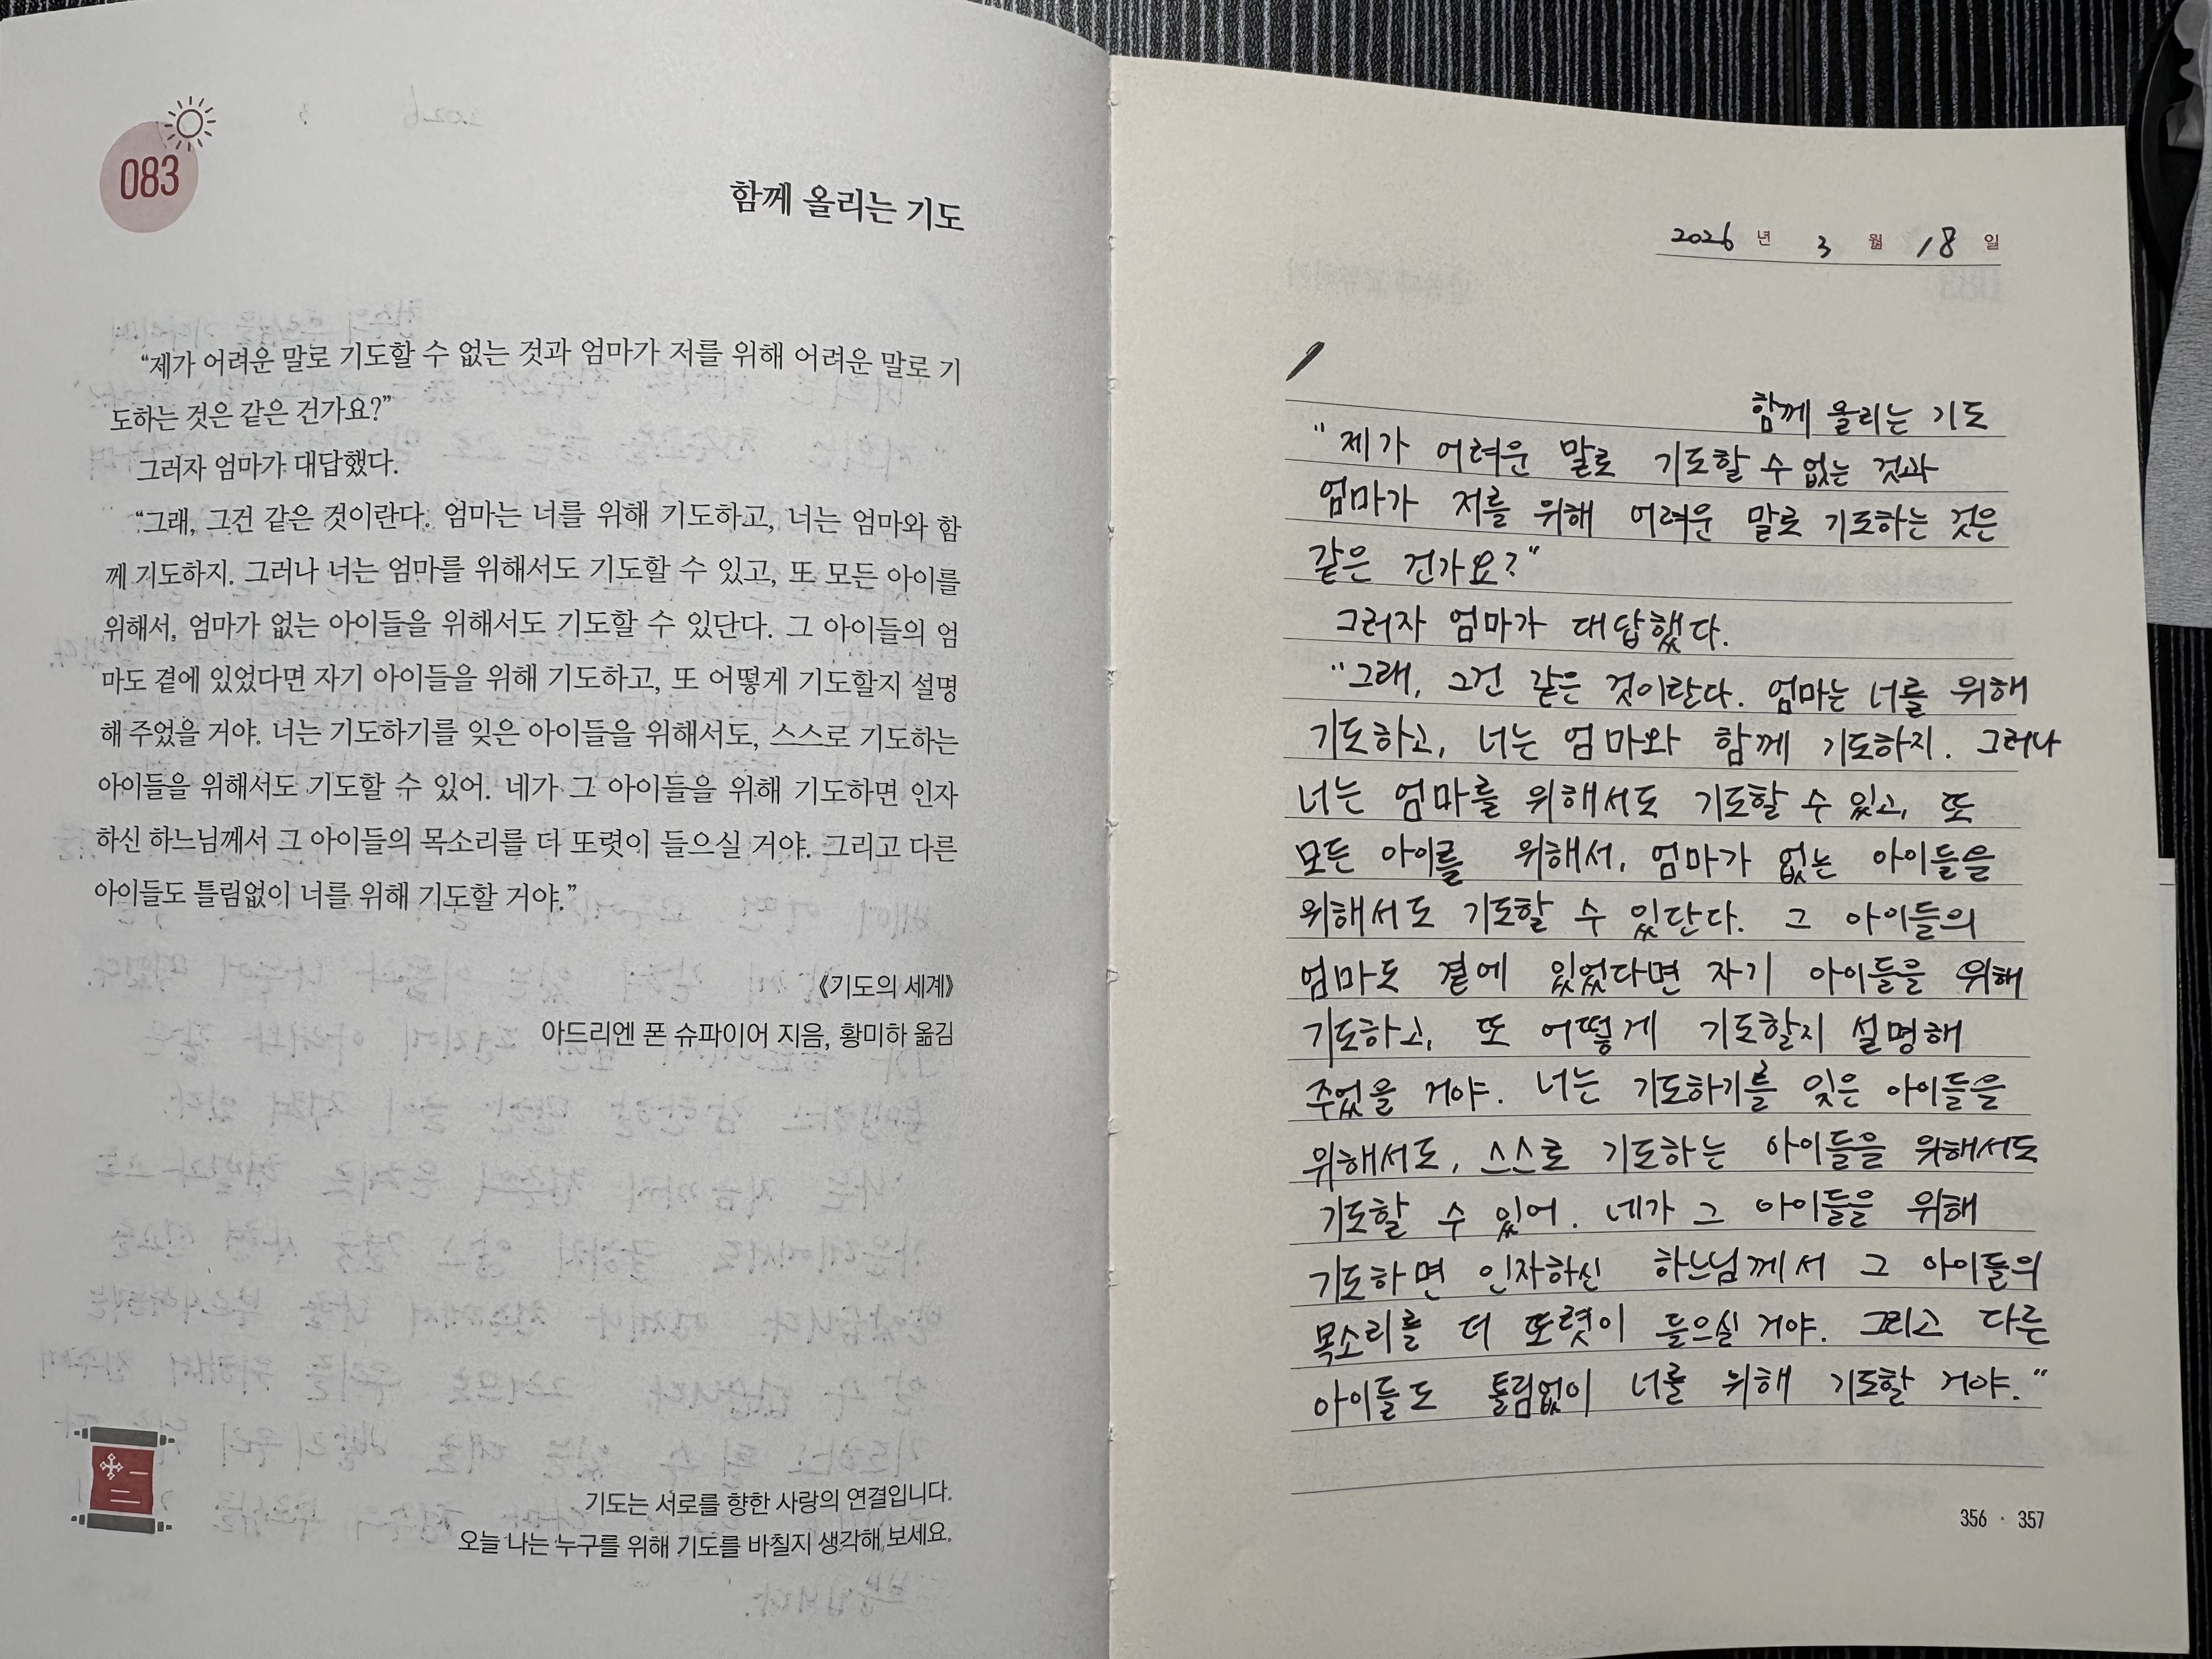 083
함께 올리는 기도
“제가 어려운 말로 기도할 수 없는 것과 엄마가 저를 위해 어려운 말로 기
도하는 것은 같은 건가요?”
그러자 엄마가 대답했다.
“그래, 그건 같은 것이란다. 엄마는 너를 위해 기도하고, 너는 엄마와 함
께 기도하지. 그러나 너는 엄마를 위해서도 기도할 수 있고, 또 모든 아이를
위해서, 엄마가 없는 아이들을 위해서도 기도할 수 있단다. 그 아이들의 엄
마도 곁에 있었다면 자기 아이들을 위해 기도하고, 또 어떻게 기도할지 설명
해 주었을 거야. 너는 기도하기를 잊은 아이들을 위해서도, 스스로 기도하는
아이들을 위해서도 기도할 수 있어. 네가 그 아이들을 위해 기도하면 인자
하신 하느님께서 그 아이들의 목소리를 더 또렷이 들으실 거야. 그리고 다른
아이들도 틀림없이 너를 위해 기도할 거야.”
《기도의 세계》
아드리엔 폰 슈파이어 지음, 황미하 옮김
기도는 서로를 향한 사랑의 연결입니다.
오늘 나는 누구를 위해 기도를 바칠지 생각해 보세요.
2026 년 3 월 18 일
함께 올리는 기도
"제가 어려운 말로 기도할 수 없는 것과
엄마가 저를 위해 어려운 말로 기도하는 것은
같은 건가요?"
그러자 엄마가 대답했다.
"그래, 그건 같은 것이란다. 엄마는 너를 위해
기도하고, 너는 엄마와 함께 기도하지. 그러나
너는 엄마를 위해서도 기도할 수 있고, 또
모든 아이를 위해서, 엄마가 없는 아이들을
위해서도 기도할 수 있단다. 그 아이들의
엄마도 곁에 있었다면 자기 아이들을 위해
기도하고, 또 어떻게 기도할지 설명해
주었을 거야. 너는 기도하기를 잊은 아이들을
위해서도, 스스로 기도하는 아이들을 위해서도
기도할 수 있어. 네가 그 아이들을 위해
기도하면 인자하신 하느님께서 그 아이들의
목소리를 더 또렷이 들으실 거야. 그리고 다른
아이들도 틀림없이 너를 위해 기도할 거야."
356 · 357